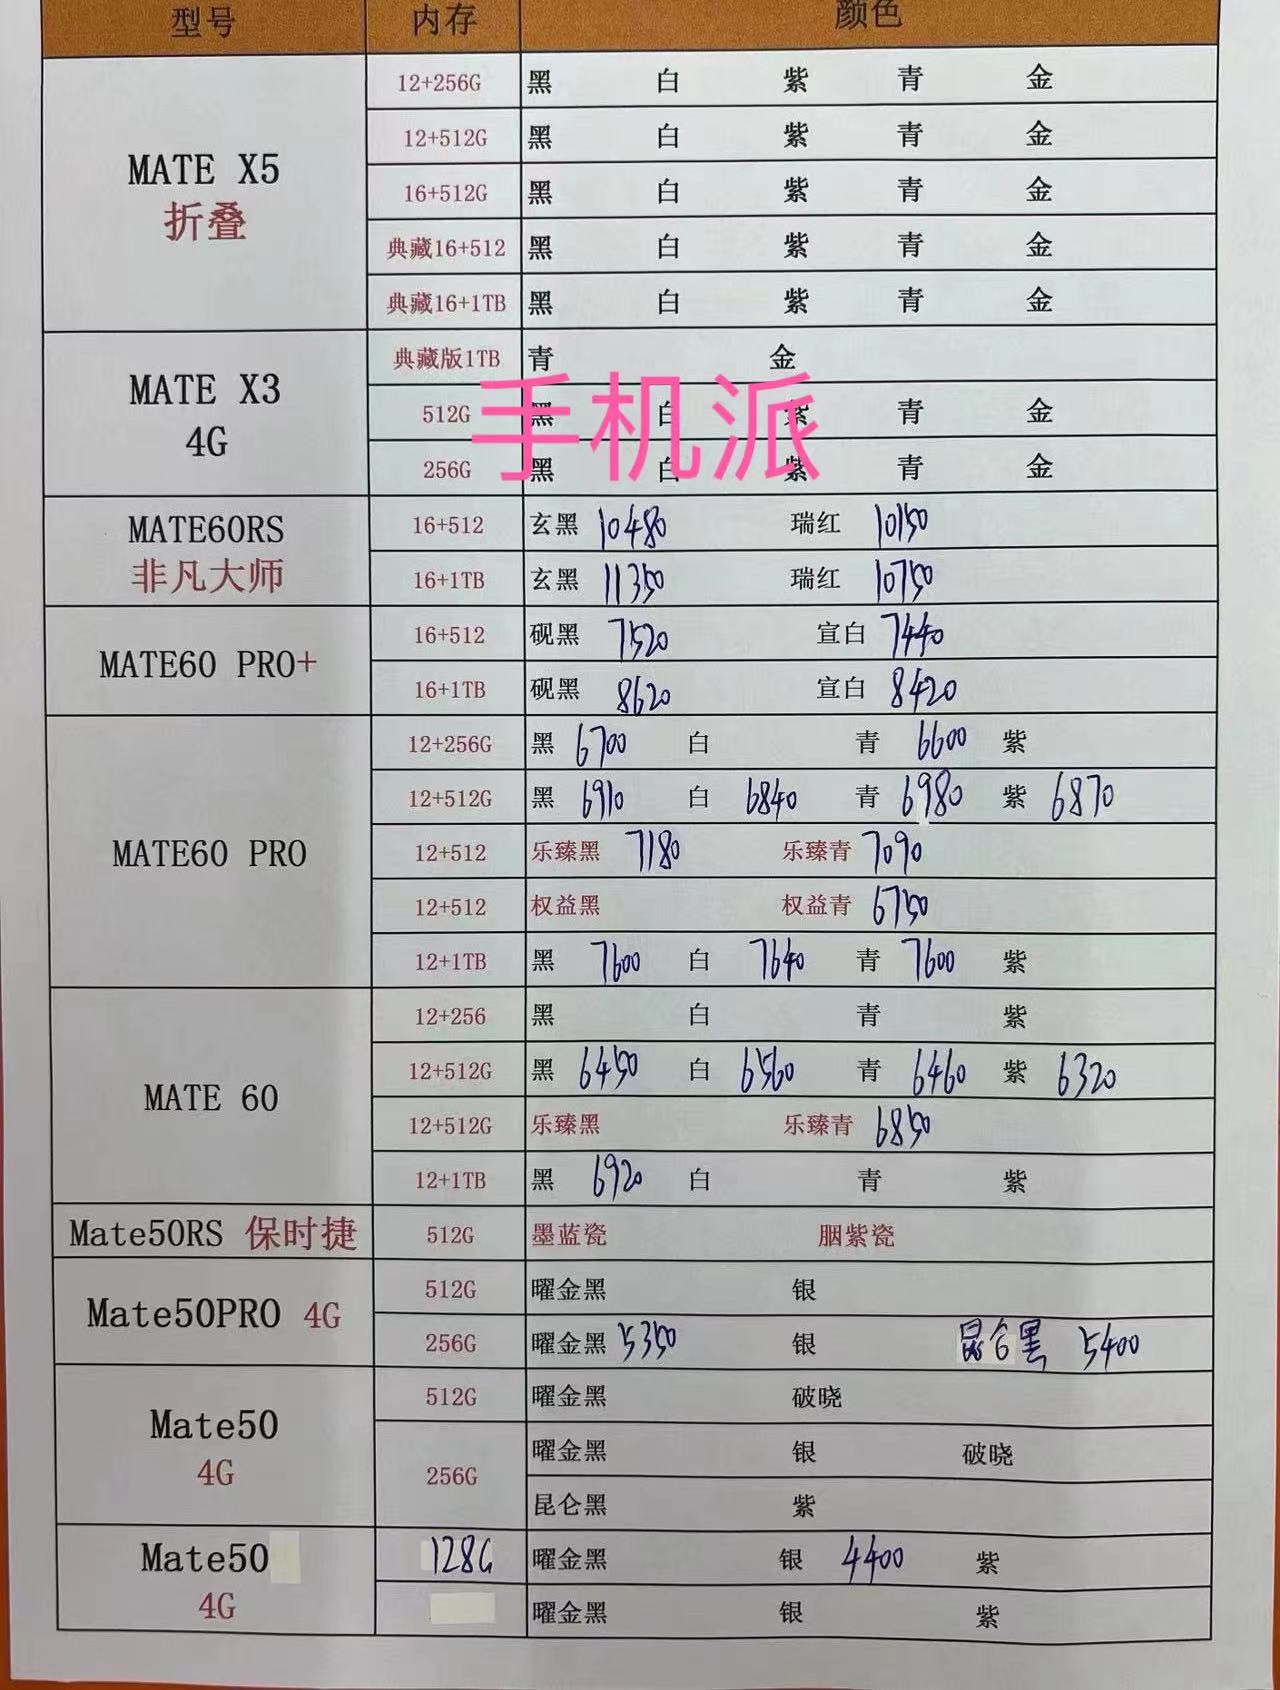 型号 内存 颜色
12+256G 黑 白 紫 青 金
12+512G 黑 白 紫 青 金
MATE X5
折叠
16+512G 黑 白 紫 青 金
典藏16+512 黑 白 紫 青 金
典藏16+1TB 黑 白 紫 青 金
典藏版1TB 青 金
MATE X3
4G
512G 黑 白 紫 青 金
手机派
256G 黑 白 紫 青 金
MATE60RS
非凡大师
16+512 玄黑 10480 瑞红 10150
16+1TB 玄黑 11350 瑞红 10750
MATE60 PRO+
16+512 砚黑 7520 宣白 7440
16+1TB 砚黑 8620 宣白 8420
12+256G 黑 6700 白 青 6600 紫
12+512G 黑 6910 白 6840 青 6980 紫 6870
MATE60 PRO
12+512 乐臻黑 7180 乐臻青 7090
12+512 权益黑 权益青 6750
12+1TB 黑 7600 白 7640 青 7600 紫
12+256 黑 白 青 紫
12+512G 黑 6450 白 6560 青 6460 紫 6320
MATE 60
12+512G 乐臻黑 乐臻青 6850
12+1TB 黑 6920 白 青 紫
Mate50RS 保时捷 512G 墨蓝瓷 胭紫瓷
Mate50PRO 4G
512G 曜金黑 银
256G 曜金黑 5350 银 昆仑黑 5400
512G 曜金黑 破晓
Mate50
4G
256G 曜金黑 银 破晓
昆仑黑 紫
Mate50
4G
128G 曜金黑 银 4400 紫
曜金黑 银 紫